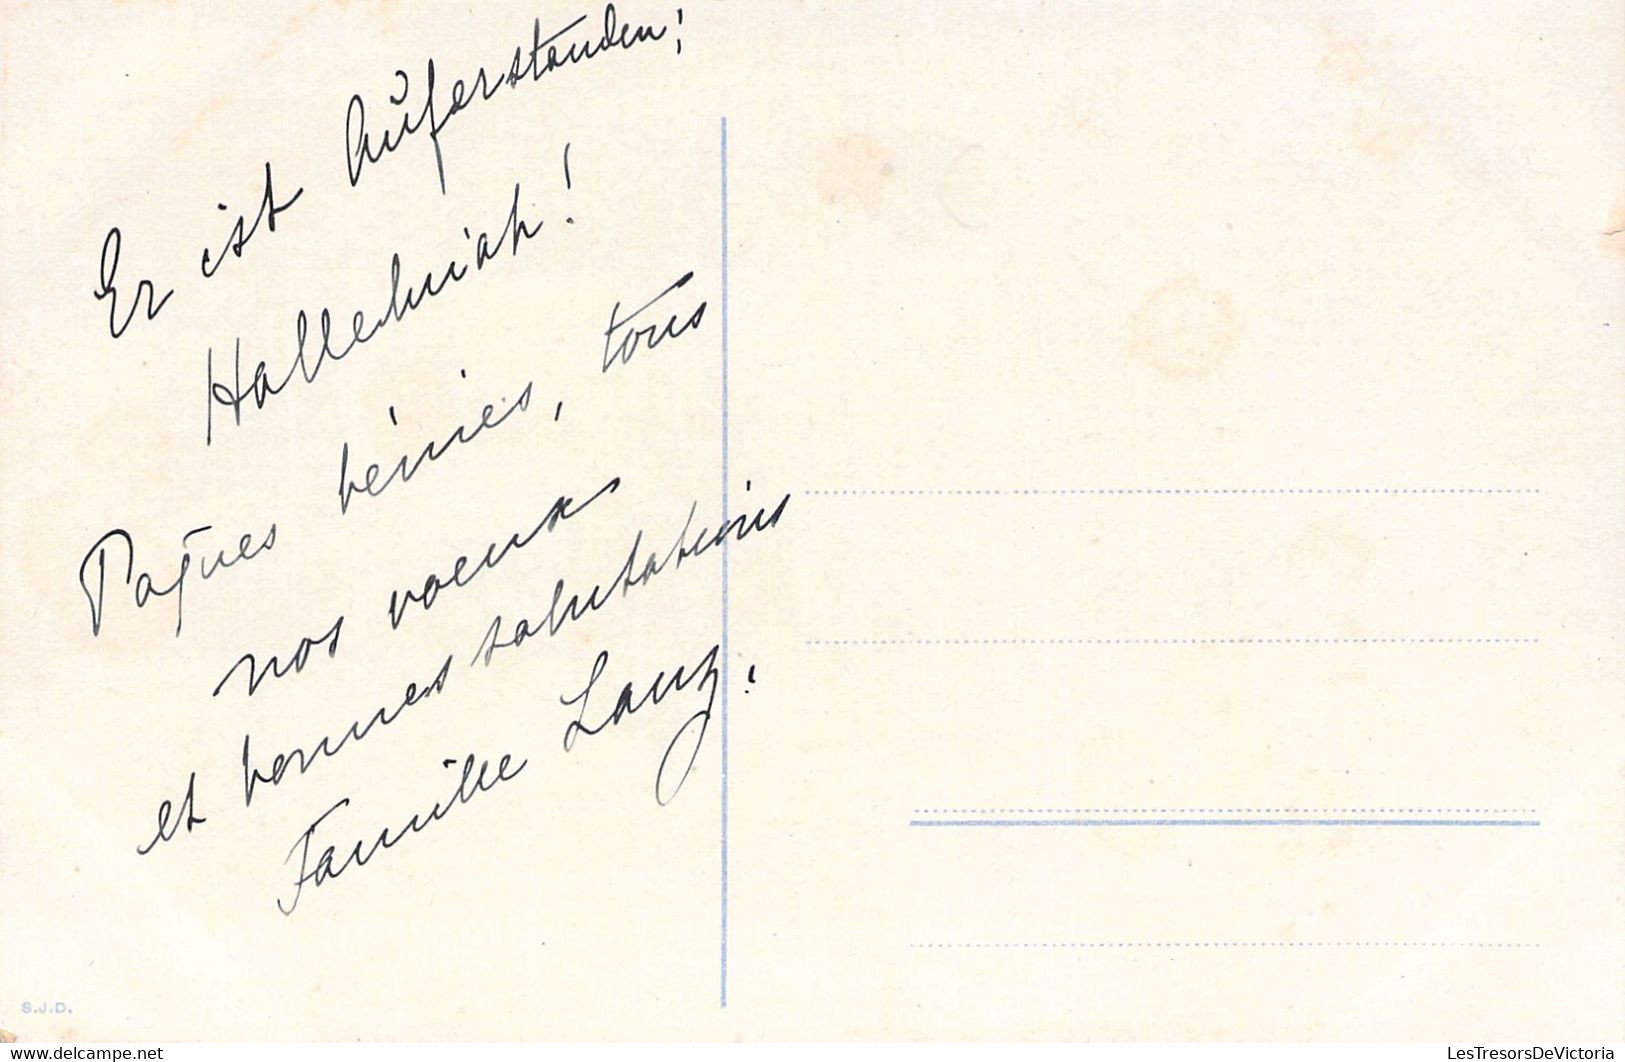 Er ist Auferstanden!
Hallelujah!
Pâques bénies, tous
nos voeux
et bonnes salutations
Famille Lanz.
S.J.D.
delcampe.net
LesTresorsDeVictoria